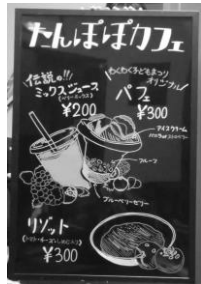 たんぽぽカフェ
伝説の!!
ミックスジュース
¥200
わくわく子どもまつり
オリジナル
パフェ
¥300
アイスクリーム
フルーツ
ブルーベリーゼリー
リゾット
¥300